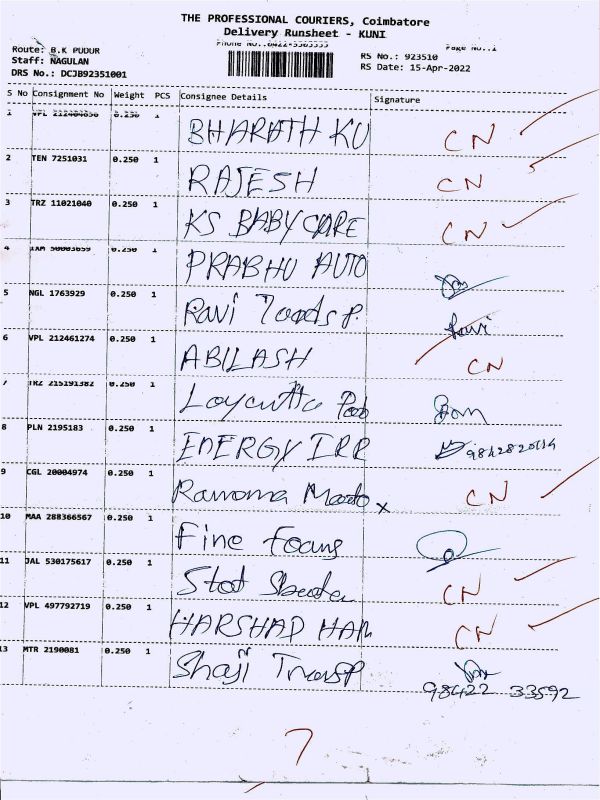 THE PROFESSIONAL COURIERS, Coimbatore
Delivery Runsheet - KUNI
Route: B.K PUDUR
Staff: NAGULAN
DRS No.: DCJB92351001
Page No.:1
RS No.: 923510
RS Date: 15-Apr-2022
S No Consignment No Weight PCS Consignee Details Signature
1 VPL 0.250 1 BHARATH KU CN
2 TEN 7251031 0.250 1 RAJESH CN
3 TRZ 11021040 0.250 1 KS BABY CARE CN
4 0.250 1 PRABHU AUTO
5 NGL 1763929 0.250 1 Ravi P. Ravi
6 VPL 212461274 0.250 1 ABILASH CN
7 TRZ 215191382 0.250 1
8 PLN 2195183 0.250 1 ENERGY IRR
9 CGL 20004974 0.250 1 x CN
10 MAA 288366567 0.250 1 Fine
11 JAL 530175617 0.250 1 CN
12 VPL 497792719 0.250 1 HARSHAD CN
13 MTR 2190081 0.250 1 Shaji
98422 33592
7